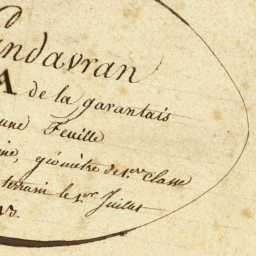 Landavran
A de la garantais
une Feuille
géomètre de 1.ere Classe
terrain le 1.er Juillet